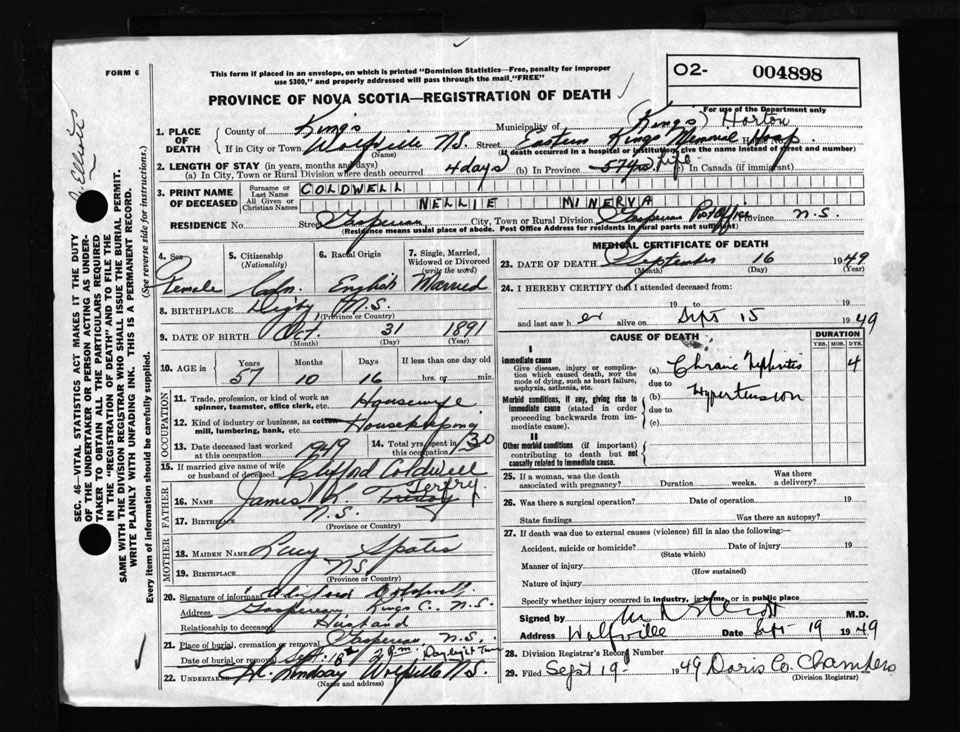 FORM 6
This form if placed in an envelope, on which is printed "Dominion Statistics—Free, penalty for improper
use $300," and properly addressed will pass through the mail, "FREE"
PROVINCE OF NOVA SCOTIA—REGISTRATION OF DEATH
O2- 004898
For use of the Department only
1. PLACE OF DEATH
County of Kings Municipality of (Kings) Horton
If in City or Town Wolfville N.S. Street Eastern Kings Memorial Hosp.
(Name) (If death occurred in a hospital or institution, give the name instead of street and number)
2. LENGTH OF STAY (in years, months and days)
(a) In City, Town or Rural Division where death occurred 4 days (b) In Province 57 yrs. life (c) In Canada (if immigrant)
3. PRINT NAME OF DECEASED
Surname or Last Name COLDWELL
All Given or Christian Names NELLIE MINERVA
RESIDENCE No. Street Gaspereau City, Town or Rural Division Gaspereau Post Office Province N.S.
(Residence means usual place of abode. Post Office Address for residents in rural parts not sufficient)
4. Sex Female
5. Citizenship (Nationality) Cdn.
6. Racial Origin English
7. Single, Married, Widowed or Divorced (write the word) Married
8. BIRTHPLACE Digby, N.S.
(Province or Country)
9. DATE OF BIRTH Oct. 31 1891
(Month) (Day) (Year)
10. AGE in Years Months Days If less than one day old
57 10 16 hrs. or min.
OCCUPATION
11. Trade, profession, or kind of work as spinner, teamster, office clerk, etc. Housewife
12. Kind of industry or business, as cotton mill, lumbering, bank, etc. Housekeeping
13. Date deceased last worked at this occupation 1949
14. Total yrs. spent in this occupation 30
15. If married give name of wife or husband of deceased Clifford Coldwell
FATHER
16. NAME James Terfry
17. BIRTHPLACE N.S.
(Province or Country)
MOTHER
18. MAIDEN NAME Lucy
19. BIRTHPLACE N.S.
(Province or Country)
20. Signature of informant Clifford Coldwell
Address Gaspereau Kings C., N.S.
Relationship to deceased Husband
21. Place of burial, cremation or removal Gaspereau, N.S.
Date of burial or removal Sept. 18th 2 P.m. Daylight Time
22. UNDERTAKER Lindsay Wolfville N.S.
(Name and Address)
MEDICAL CERTIFICATE OF DEATH
23. DATE OF DEATH September 16 1949
(Month) (Day) (Year)
24. I HEREBY CERTIFY that I attended deceased from:
19 to 19
and last saw her alive on Sept 15 1949
CAUSE OF DEATH
DURATION
YRS. MOS. DYS.
I
Immediate cause
Give disease, injury or complication which caused death, not the mode of dying, such as heart failure, asphyxia, asthenia, etc.
(a) Chronic Nephritis 4
due to
Morbid conditions, if any, giving rise to immediate cause (stated in order proceeding backwards from immediate cause).
(b) Hypertension
due to
(c)
II
Other morbid conditions (if important) contributing to death but not causally related to immediate cause.
25. If a woman, was the death associated with pregnancy? Duration weeks. Was there a delivery?
26. Was there a surgical operation? Date of operation 19
State findings Was there an autopsy?
27. If death was due to external causes (violence) fill in also the following:—
Accident, suicide or homicide? Date of injury 19
(State which)
Manner of injury
(How sustained)
Nature of injury
Specify whether injury occurred in industry, in home, or in public place
Signed by Elliott M.D.
Address Wolfville Date Sept 19 1949
28. Division Registrar's Record Number
29. Filed Sept 19 1949 Doris Co. Chambers
(Division Registrar)
Elliott
SEC. 46—VITAL STATISTICS ACT MAKES IT THE DUTY
OF THE UNDERTAKER OR PERSON ACTING AS UNDERTAKER
TO OBTAIN ALL THE PARTICULARS REQUIRED
IN THE "REGISTRATION OF DEATH" AND TO FILE THE
SAME WITH THE DIVISION REGISTRAR WHO SHALL ISSUE THE BURIAL PERMIT.
WRITE PLAINLY WITH UNFADING INK. THIS IS A PERMANENT RECORD.
Every item of information should be carefully supplied. (See reverse side for instructions.)